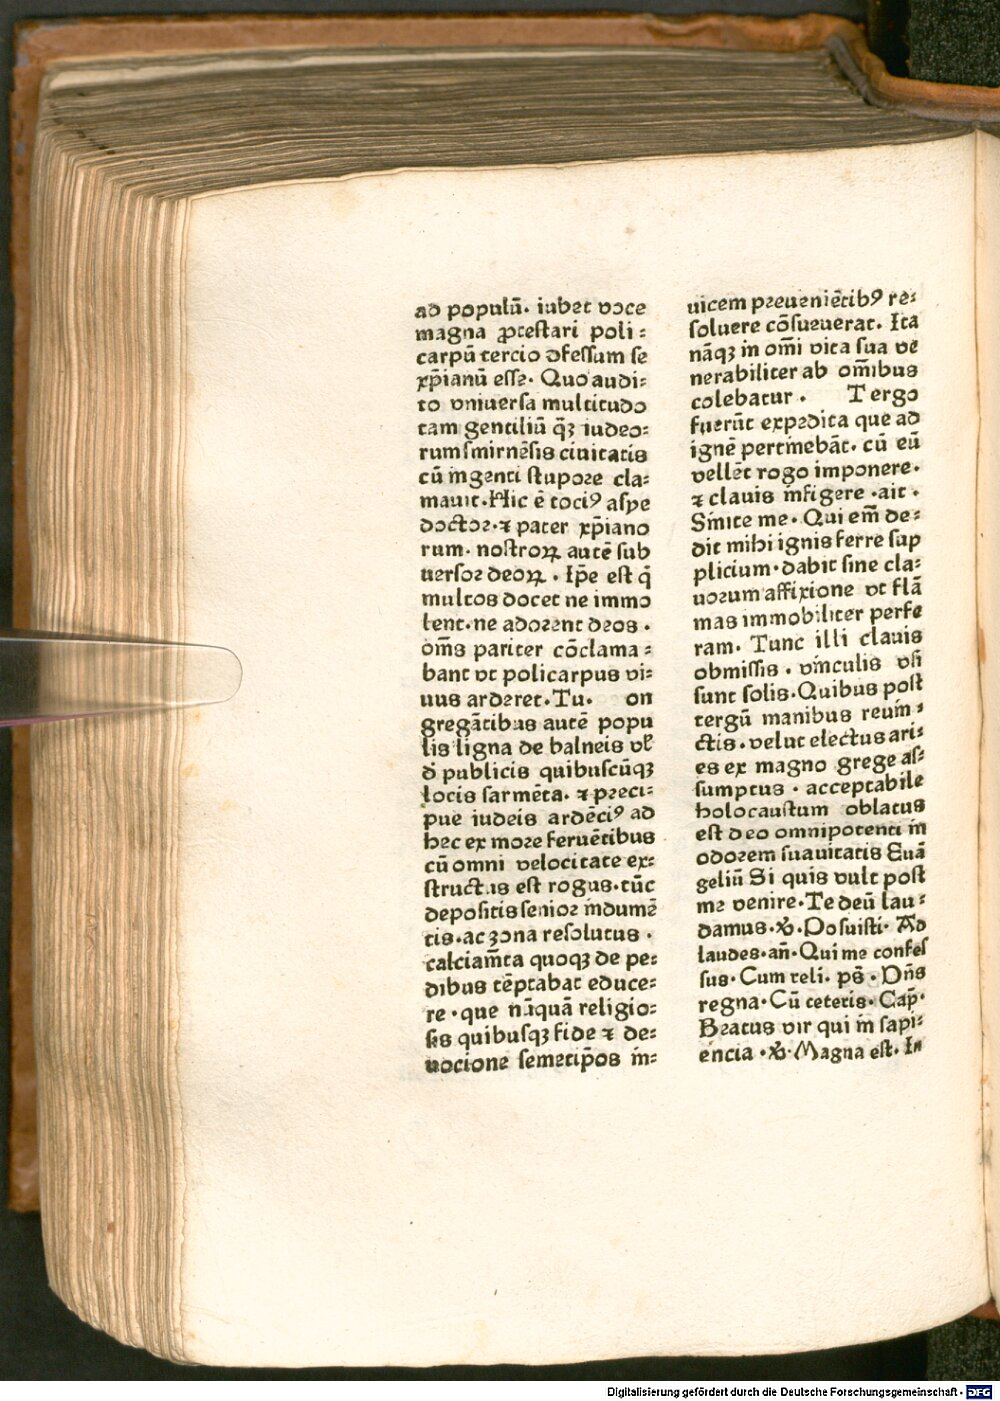 ad populū. iubet voce
magna ꝓtestari poli⸗
carpū tercio ꝯfessum se
xp̄ianū esse. Quo audi⸗
to vniuersa multitudo
tam gentiliū q̄ꝫ iudeo⸗
rum smirnēsis ciuitatis
cū ingenti stupore cla⸗
mauit. Hic ē tociꝰ asye
doctor. ⁊ pater xp̄iano
rum. nostroꝝ autē sub
uersor deoꝝ. Ip̄e est q̄
multos docet ne immo
lent. ne adorent deos.
om̄s pariter cōclama⸗
bant vt policarpus vi⸗
uus arderet. Tu. on
gregātibus autē popu
lis ligna de balneis vl̓
d̓ publicis quibuscūqꝫ
locis sarmēta. ⁊ preci⸗
pue iudeis ardēciꝰ ad
hec ex more feruētibus
cū omni velocitate ex⸗
structus est rogus. tūc
depositis senior indumē
tis. ac zona resolutus.
calciam̄ta quoqꝫ de pe⸗
dibus tēptabat educe⸗
re. que nūquā religio⸗
sis quibusqꝫ fide ⁊ de⸗
uocione semetip̄os in⸗
uicem preueniētibꝰ re⸗
soluere cōsueuerat. Ita
nāqꝫ in om̄i vita sua ve
nerabiliter ab om̄ibus
colebatur. T ergo
fuerūt expedita que ad
ignē pertinebāt. cū eū
vellēt rogo imponere.
⁊ clauis infigere. ait.
Sinite me. Qui em̄ de⸗
dit mihi ignis ferre sup
plicium. dabit sine cla⸗
uorum affixione vt flā
mas immobiliter perfe
ram. Tunc illi clauis
obmissis. vinculis vsi
sunt solis. Quibus post
tergū manibus reuin⸗
ctis. velut electus ari⸗
es ex magno grege as⸗
sumptus. acceptabile
holocaustum oblatus
est deo omnipotenti in
odorem suauitatis Euā
geliū Si quis vult post
me venire. Te deū lau⸗
damus. ℣. Posuisti. Ad
laudes. an̄. Qui me confes
sus. Cum reli. ps̄. Dn̄s
regna. Cū ceteris. Cap̄.
Beatus vir qui in sapi⸗
encia. ℣. Magna est. In
Digitalisierung gefördert durch die Deutsche Forschungsgemeinschaft - DFG